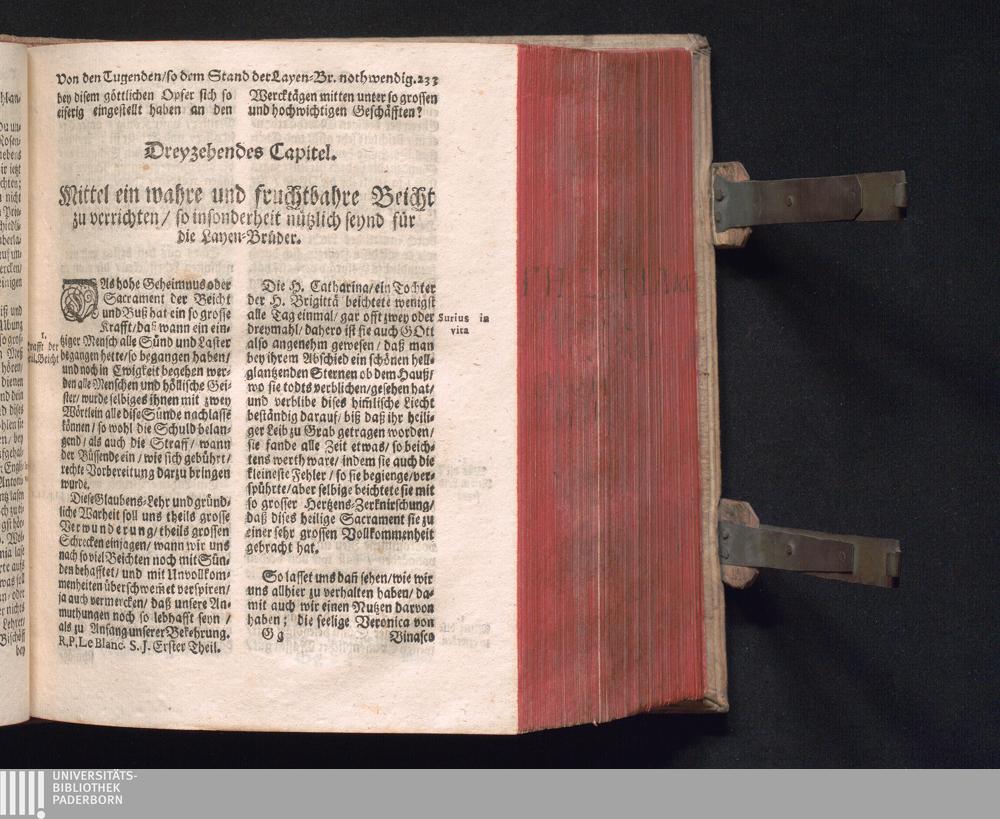 Von den Tugenden/so dem Stand der Layen-Br. nothwendig. 233
bey disem göttlichen Opfer sich so
eiferig eingestellt haben an den
Wercktägen mitten unter so grossen
und hochwichtigen Geschäfften?
Dreyzehendes Capitel.
Mittel ein wahre und fruchtbahre Beicht
zu verrichten/ so insonderheit nützlich seynd für
die Layen-Brüder.
DAs hohe Geheimnus oder
Sacrament der Beicht
und Buß hat ein so grosse
Krafft/daß wann ein ein-
tziger Mensch alle Sünd und Laster
begangen hette/so begangen haben/
und noch in Ewigkeit begehen wer-
den alle Menschen und höllische Gei-
ster/ wurde selbiges ihnen mit zwey
Wörtlein alle dise Sünde nachlasse
können/ so wohl die Schuld belan-
gend/ als auch die Straff/ wann
der Büssende ein/ wie sich gebührt/
rechte Vorbereitung darzu bringen
wurde.
Diese Glaubens-Lehr und gründ-
liche Warheit soll uns theils grosse
Verwunderung/ theils grossen
Schrecken einjagen/ wann wir uns
nach so viel Beichten noch mit Sün-
den behafftet/ und mit Unvollkom-
menheiten überschwem̃et verspiren/
ja auch vermercken/ daß unsere An-
muthungen noch so lebhafft seyn/
als zu Anfang unserer Bekehrung.
R. P. Le Blanc. S. J. Erster Theil.
1.
Krafft der
heil. Beicht
Die H. Catharina/ ein Tochter
der H. Brigittä beichtete wenigst
alle Tag einmal/ gar offt zwey oder
dreymahl/ dahero ist sie auch GOtt
also angenehm gewesen/ daß man
bey ihrem Abschied ein schönen hell-
glantzenden Sternen ob dem Hauß/
wo sie todts verblichen/gesehen hat/
und verblibe dises him̃lische Liecht
beständig darauf/ biß daß ihr heili-
ger Leib zu Grab getragen worden/
sie fande alle Zeit etwas/ so beich-
tens werth ware/ indem sie auch die
kleineste Fehler/ so sie begienge/ver-
spührte/aber selbige beichtete sie mit
so grosser Hertzens-Zerknirschung/
daß dises heilige Sacrament sie zu
einer sehr grossen Vollkommenheit
gebracht hat.
Surius in
vita
So lasset uns dañ sehen/wie wir
uns allhier zu verhalten haben/ da-
mit auch wir einen Nutzen darvon
haben; die seelige Veronica von
G g
Binasco
UNIVERSITÄTS-
BIBLIOTHEK
PADERBORN